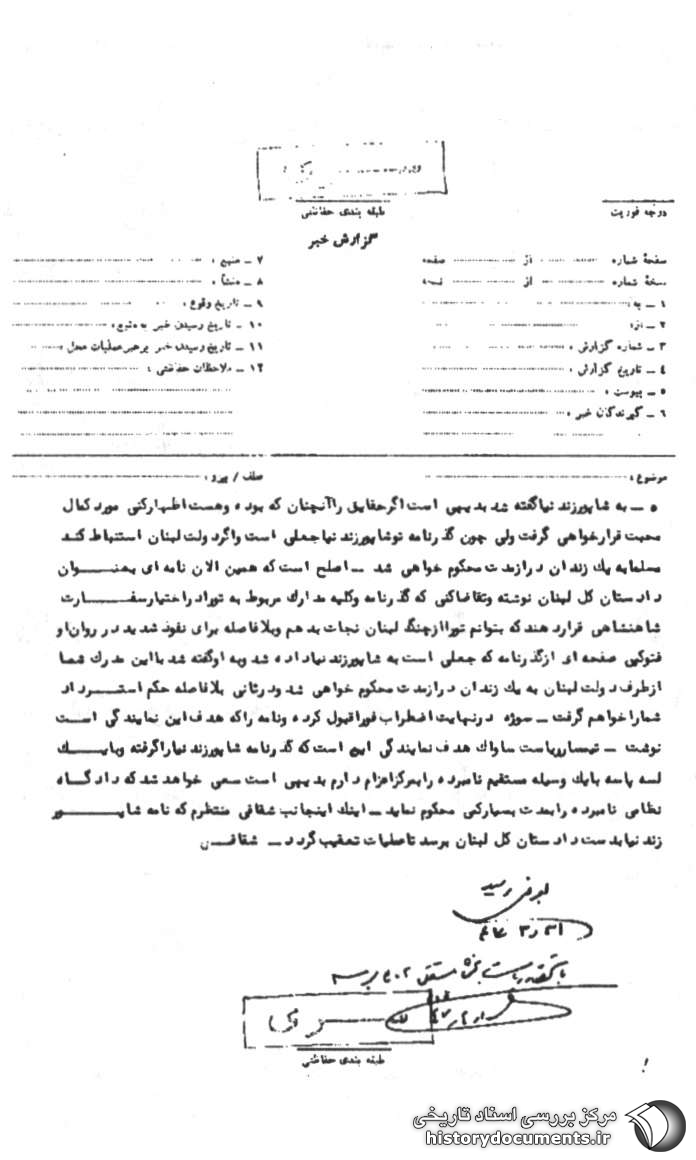 طبقه بندی حفاظتی
درجه فوریت
گزارش خبر
صفحهٔ شماره از صفحه
نسخهٔ شماره از نسخه
۱ ـ به :
۲ ـ از:
۳ ـ شماره گزارش :
٤ ـ تاریخ گزارش :
۵ ـ پیوست :
٦ ـ گیرندگان خبر :
۷ ـ منبع :
۸ ـ منشأ :
۹ ـ تاریخ وقوع :
۱۰ ـ تاریخ رسیدن خبر به منبع:
۱۱ ـ تاریخ رسیدن خبر برهبر عملیات محل :
۱۲ ـ ملاحظات حفاظتی :
موضوع :
عطف / پیرو :
۵ ـ به شاپورزند نیاگفته شد بدیهی است اگرحقایق راآنچنان که بوده وهست اظهارکنی مورد کمال
محبت قرارخواهی گرفت ولی چون گذرنامه توشاپورزند نیاجعلی است واگرد ولت لبنان استنباط کند
مسلمابه یك زندان درازمدت محکوم خواهی شد ـ اصلح است که همین الان نامه ای بعنوان
دادستان کل لبنان نوشته وتقاضاکنی که گذرنامه وکلیه مدارك مربوط به توراد راختیارسفارت
شاهنشاهی قرارد هند که بتوانم توراازچنگ لبنان نجات بدهم وبلافاصله برای نفوذ شدید در روان او
فتوکپی صفحه ای ازگذرنامه که جعلی است به شاپورزند نیاداده شد وبه اوگفته شد بااین مدرك شما
ازطرف دولت لبنان به یك زندان درازمدت محکوم خواهی شد ودرثانی بلافاصله حکم استرداد
شماراخواهم گرفت ـ سوژه درنهایت اضطراب فوراقبول کرده ونامه راکه هدف این نمایندگی است
نوشت ـ تیمسارریاست ساواك هدف نمایندگی این است که گذرنامه شاپورزند نیاراگرفته وبایك
لسه پاسه بایك وسیله مستقیم نامبرده رابمرکزاعزام دارم بدیهی است سعی خواهد شد که دادگاه
نظامی نامبرده رابمدت بسیارکمی محکوم نماید ـ اینك اینجانب شقاقی منتظرم که نامه شاپور
زند نیابدست دادستان کل لبنان برسد تاعملیات تعقیب گردد ـ شقاقی
بعرض رسید
طبقه بندی حفاظتی
مرکز بررسی اسناد تاریخی
historydocuments.ir